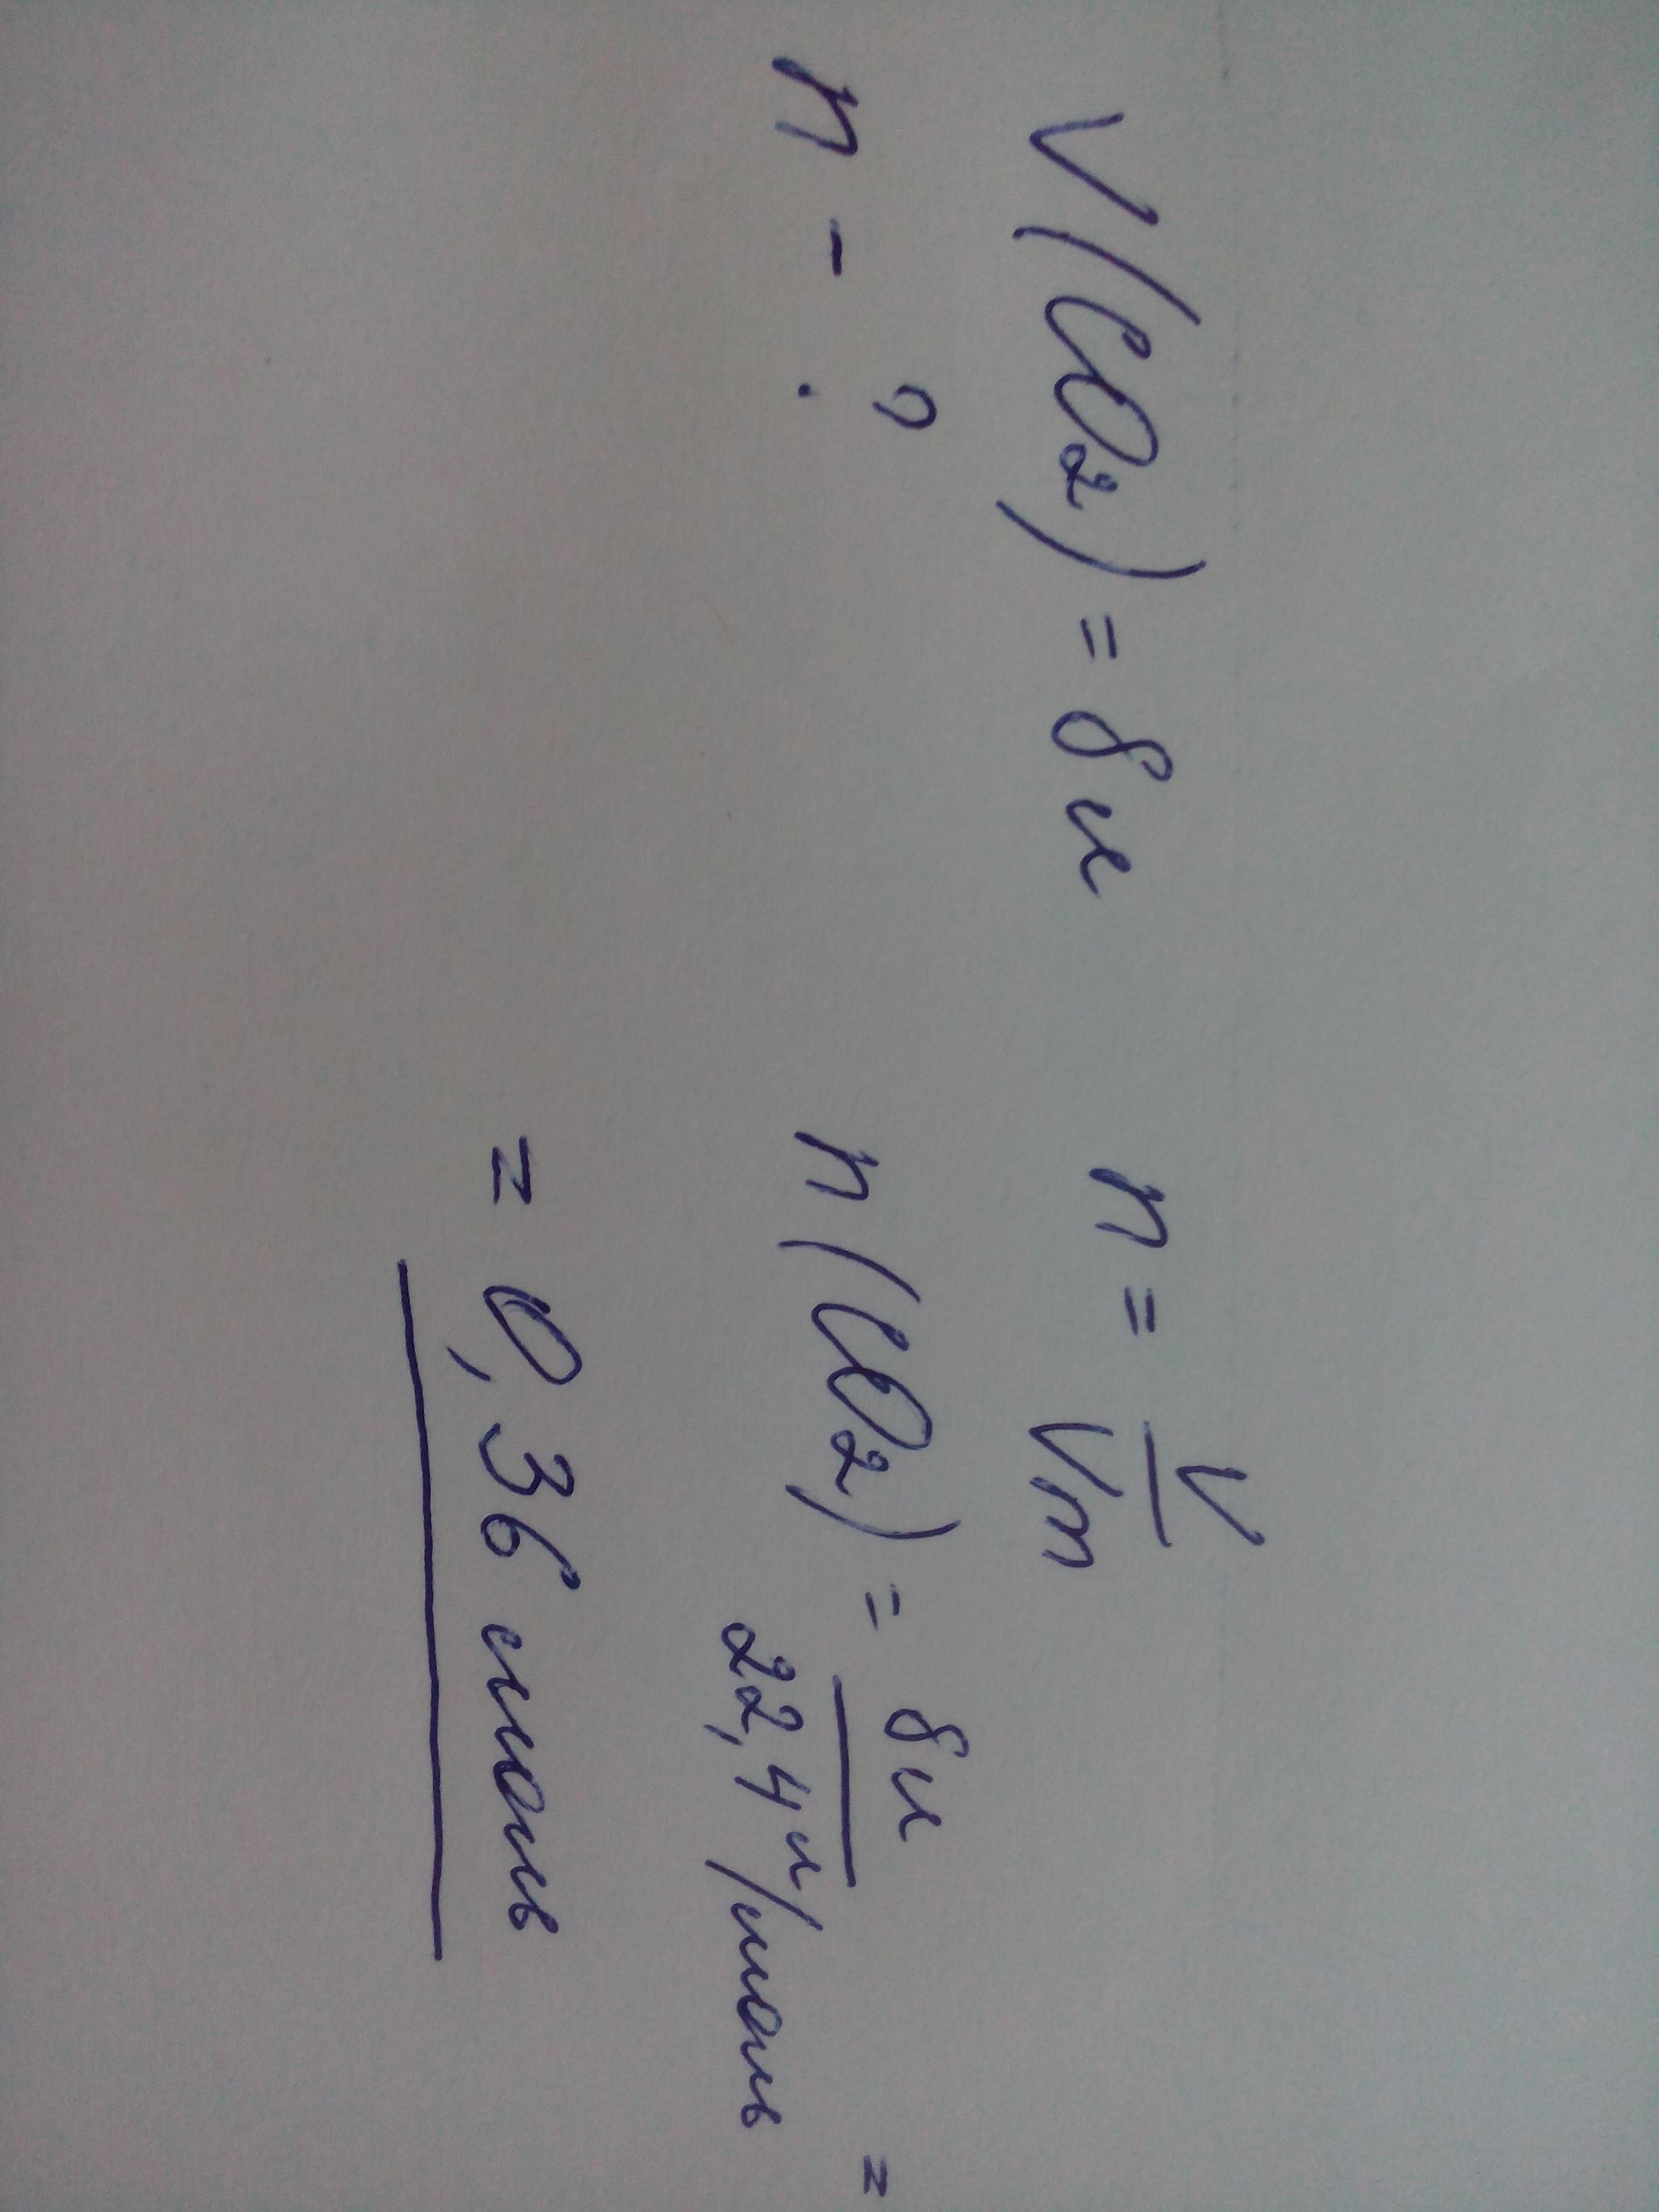 V(CO₂) = 8 л
n - ?
n = V/Vm
n(CO₂) = 8л/22,4 л/моль =
= 0,36 моль